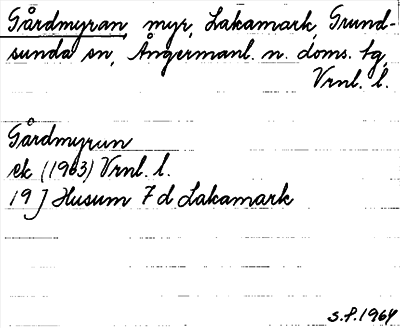 Gårdmyran, myr, Lakamark, Grund-
sunda sn, Ångermanl. n. doms. tg,
Vrnl. l.
Gårdmyrun
ek (1963) Vrnl. l.
19 J Husum 7 d Lakamark
S.P. 1964